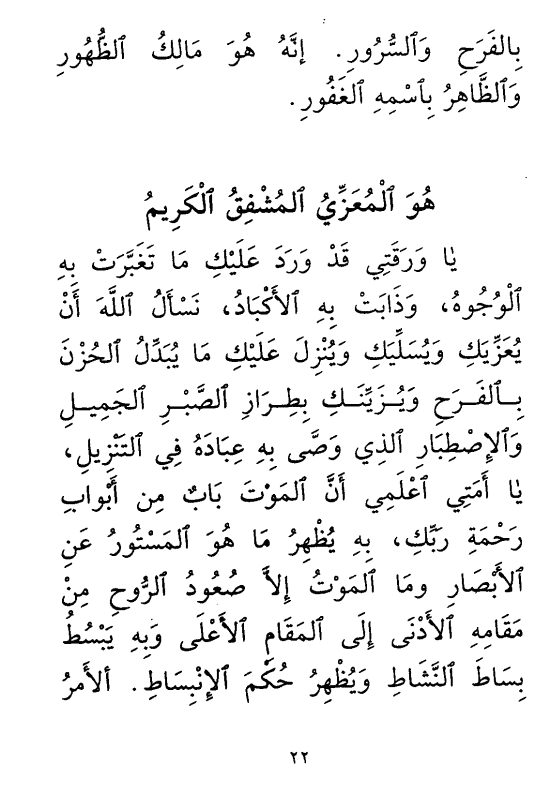 بِالفَرَحِ وَٱلسُّرُورِ. إِنَّهُ هُوَ مَالِكُ ٱلظُّهُورِ
وَٱلظَّاهِرُ بِٱسْمِهِ ٱلغَفُورِ.
هُوَ ٱلْمُعَزِّيُ ٱلمُشْفِقُ ٱلْكَرِيمُ
يٰا وَرَقَتِي قَدْ وَرَدَ عَلَيْكِ مَا تَغَبَّرَتْ بِهِ
ٱلْوُجُوهُ، وَذَابَتْ بِهِ ٱلأَكْبَادُ، نَسْأَلُ ٱللَّهَ أَنْ
يُعَزِّيَكِ وَيُسَلِّيَكِ وَيُنْزِلَ عَلَيْكِ مَا يُبَدِّلُ ٱلحُزْنَ
بِٱلفَرَحِ وَيُزَيِّنَكِ بِطِرَازِ ٱلصَّبْرِ ٱلجَمِيلِ
وَٱلإِصْطِبَارِ ٱلذِي وَصَّى بِهِ عِبَادَهُ فِي ٱلتَنْزِيلِ،
يٰا أَمَتِي ٱعْلَمِي أَنَّ ٱلمَوْتَ بَابٌ مِن أَبْوابِ
رَحْمَةِ رَبِّكِ، بِهِ يُظْهِرُ مَا هُوَ ٱلمَسْتُورُ عَنِ
ٱلأَبْصَارِ وَمَا ٱلمَوْتُ إِلاَّ صُعُودُ ٱلرُّوحِ مِنْ
مَقَامِهِ ٱلأَدْنَى إِلَى ٱلمَقَامِ ٱلأَعْلَى وَبِهِ يَبْسُطُ
بِسَاطَ ٱلنَّشَاطِ وَيُظْهِرُ حُكْمَ ٱلإِنْبِسَاطِ. ألأَمرُ
٢٢